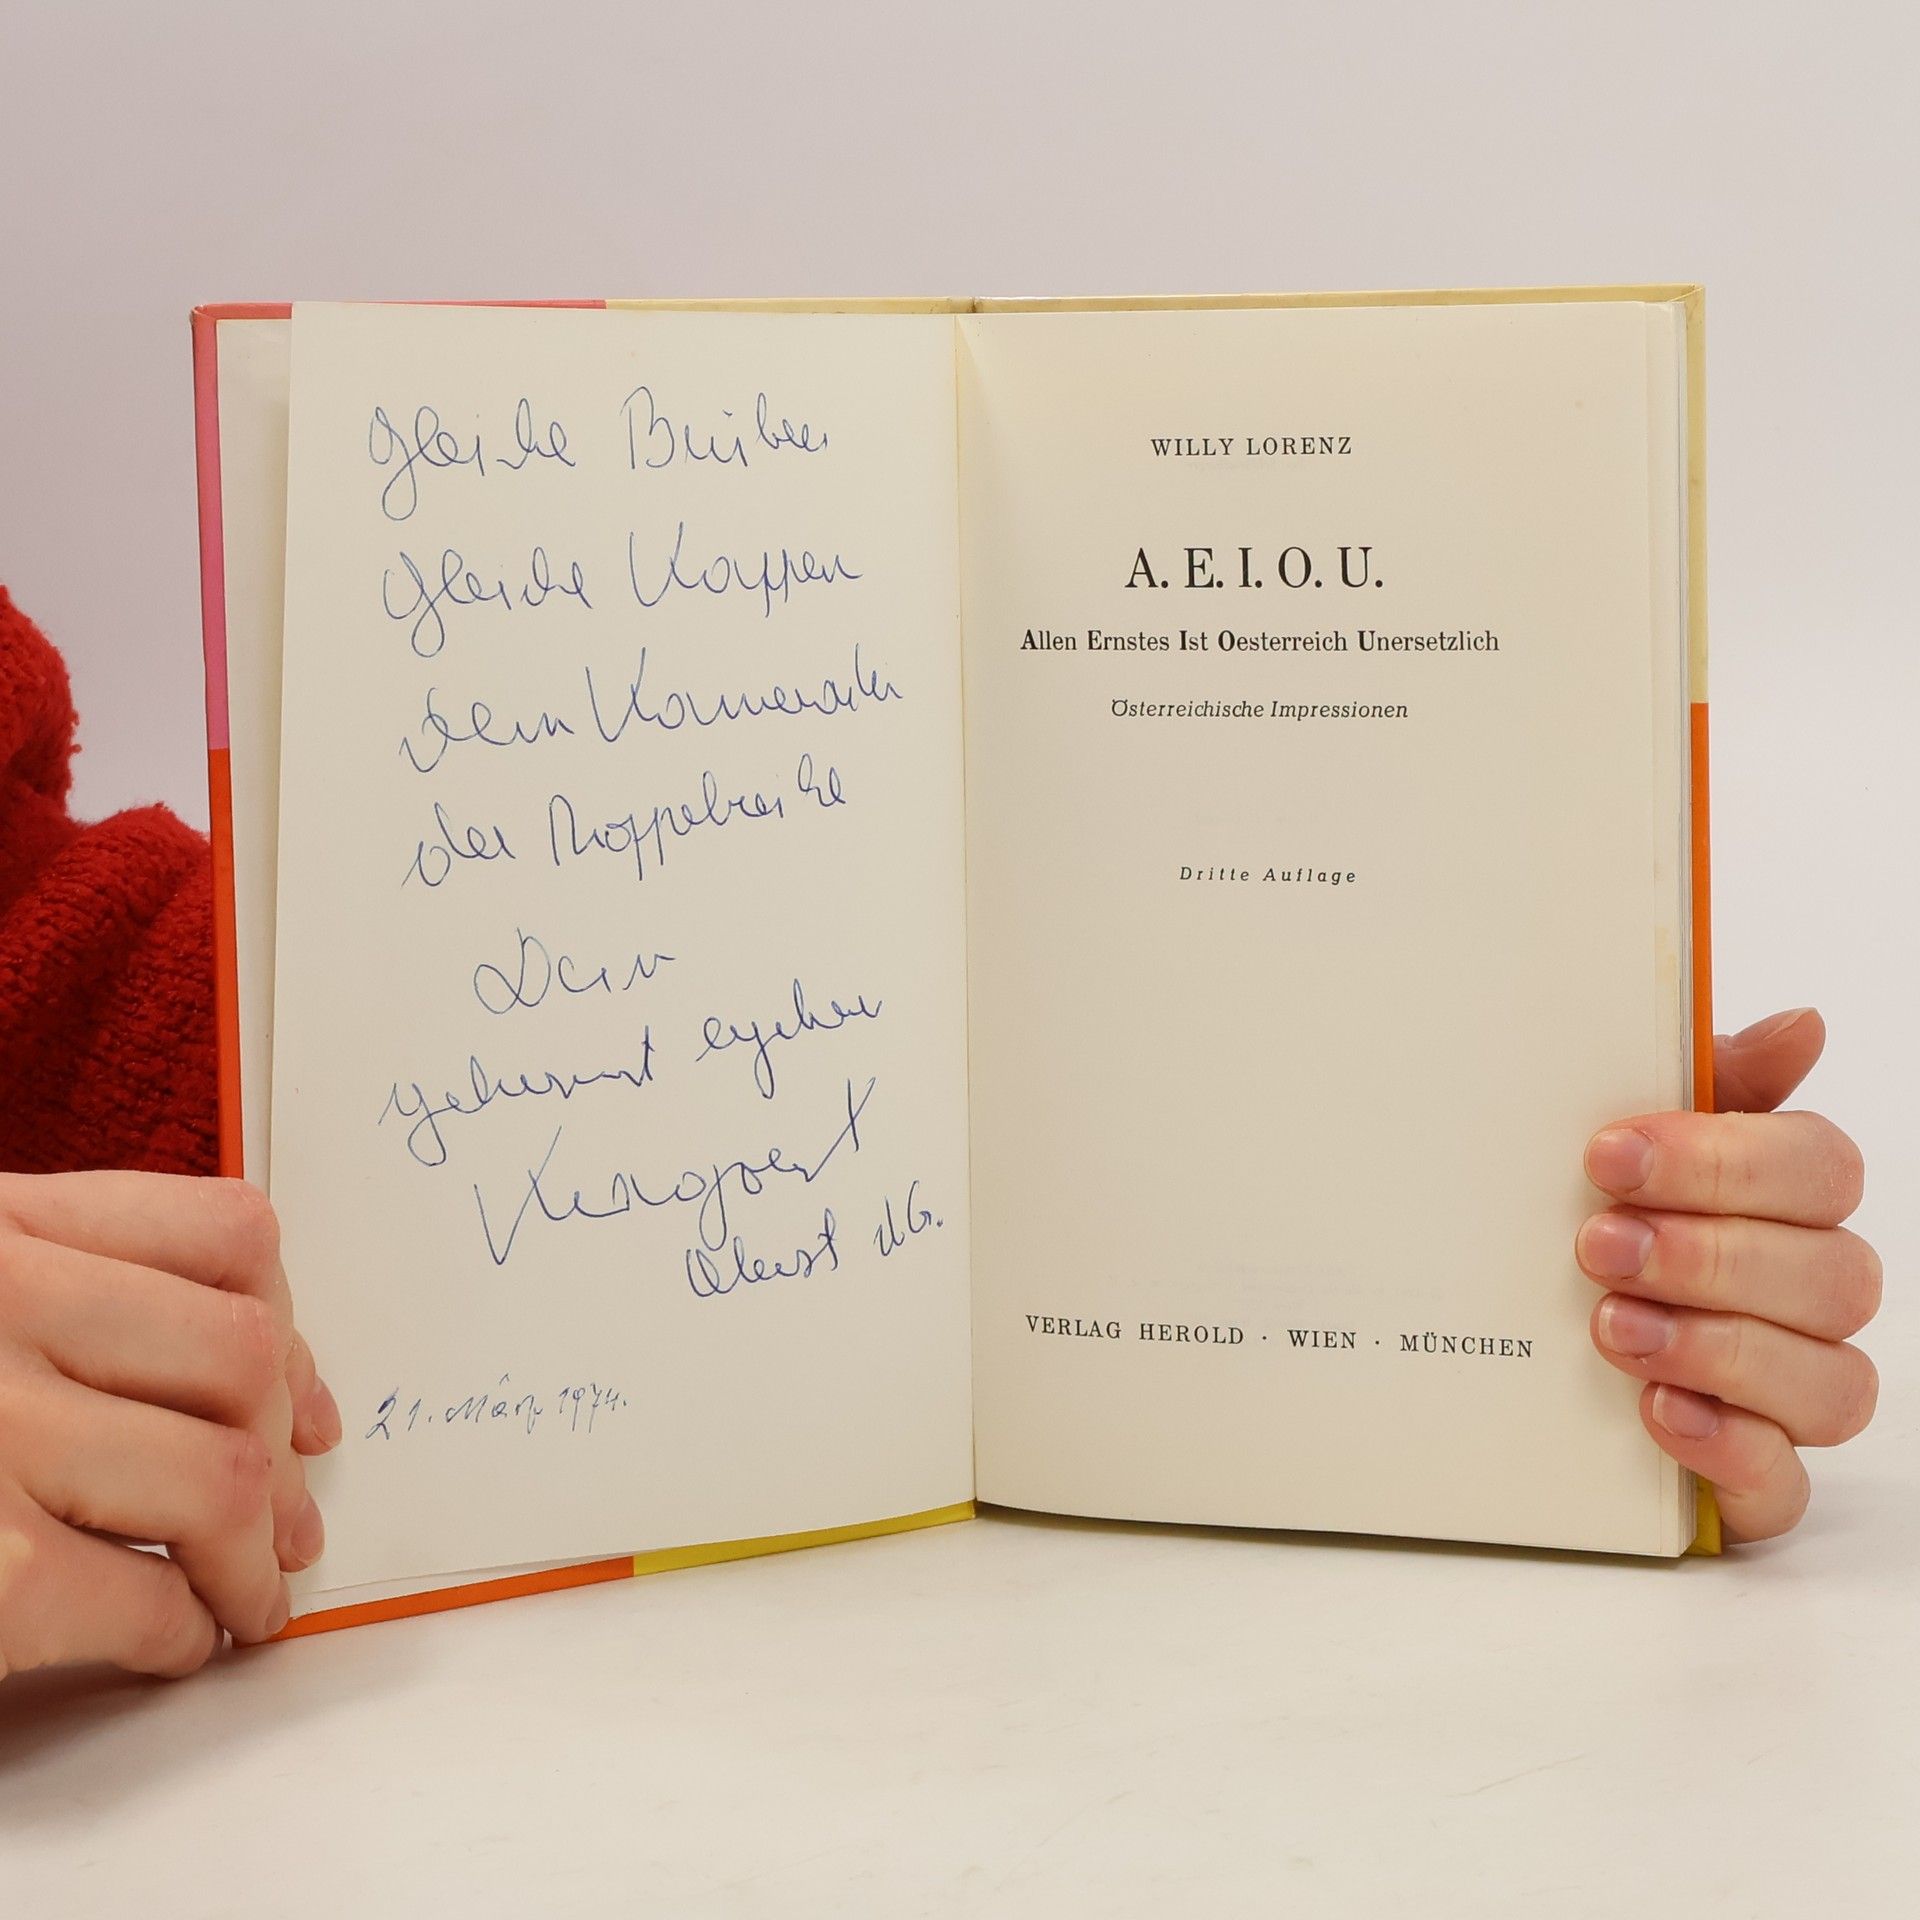 Gleiche Brüder
Gleiche Kappen
dem Kameraden
der
Dein
gehorsamst ergebener
Oberst dG.
21. März 1974.
WILLY LORENZ
A. E. I. O. U.
Allen Ernstes Ist Oesterreich Unersetzlich
Österreichische Impressionen
Dritte Auflage
VERLAG HEROLD · WIEN · MÜNCHEN